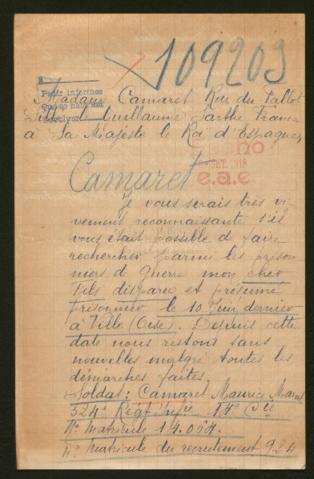 109203
Madame Camaret Rue du Tallot
Sillé le Guillaume Sarthe France
à Sa Majesté le Roi d'Espagne
1918
e.a.e.
Camaret
Je vous serais très vi-
vement reconnaissante s'il
vous était possible de faire
rechercher parmi les prison-
niers de guerre mon cher
fils disparu et présumé
prisonnier le 10 Juin dernier
à Ville (Oise). Depuis cette
date nous restons sans
nouvelles malgré toutes les
démarches faites.
Soldat: Camaret Maurice Marcel
324e Régt Infie 14e Cie
No matricule 14.064.
No matricule du recrutement 924